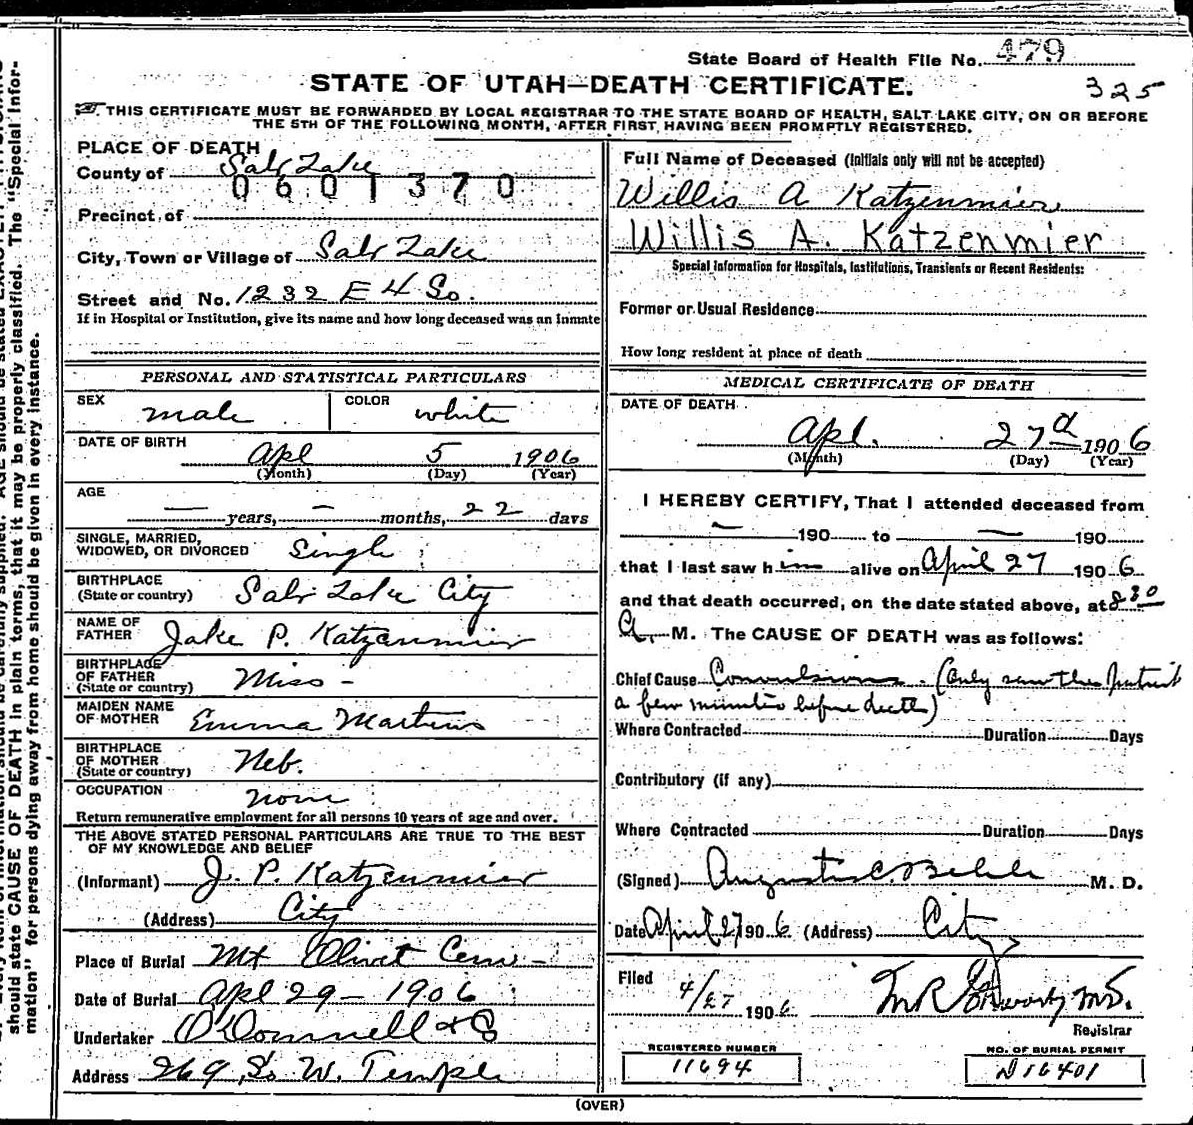 State Board of Health File No. 479
STATE OF UTAH—DEATH CERTIFICATE.
325
THIS CERTIFICATE MUST BE FORWARDED BY LOCAL REGISTRAR TO THE STATE BOARD OF HEALTH, SALT LAKE CITY, ON OR BEFORE
THE 5TH OF THE FOLLOWING MONTH, AFTER FIRST HAVING BEEN PROMPTLY REGISTERED.
PLACE OF DEATH
County of Salt Lake
0601370
Precinct of
City, Town or Village of Salt Lake
Street and No. 1232 E 4 So.
If in Hospital or Institution, give its name and how long deceased was an inmate
PERSONAL AND STATISTICAL PARTICULARS
SEX male COLOR white
DATE OF BIRTH
Apl 5 1906
(Month) (Day) (Year)
AGE
— years, — months, 22 days
SINGLE, MARRIED,
WIDOWED, OR DIVORCED Single
BIRTHPLACE
(State or country) Salt Lake City
NAME OF
FATHER Jake P. Katzenmier
BIRTHPLACE
OF FATHER
(State or country) Miso -
MAIDEN NAME
OF MOTHER Emma Martins
BIRTHPLACE
OF MOTHER
(State or country) Neb.
OCCUPATION none
Return remunerative employment for all persons 10 years of age and over.
THE ABOVE STATED PERSONAL PARTICULARS ARE TRUE TO THE BEST
OF MY KNOWLEDGE AND BELIEF
(Informant) J. P. Katzenmier
(Address) City
Place of Burial Mt Olivet Cem -
Date of Burial Apl 29 - 1906
Undertaker O'Donnell & Co
Address 269 So W. Temple
Full Name of Deceased (Initials only will not be accepted)
Willis A Katzenmier
Willis A. Katzenmier
Special Information for Hospitals, Institutions, Transients or Recent Residents:
Former or Usual Residence
How long resident at place of death
MEDICAL CERTIFICATE OF DEATH
DATE OF DEATH
Apl. 27th 1906
(Month) (Day) (Year)
I HEREBY CERTIFY, That I attended deceased from
— 190 to — 190
that I last saw him alive on April 27 1906
and that death occurred, on the date stated above, at 8 30
A. M. The CAUSE OF DEATH was as follows:
Chief Cause Convulsions. (Only saw the patient
a few minutes before death)
Where Contracted Duration Days
Contributory (if any)
Where Contracted Duration Days
(Signed) August C. Behle M. D.
Date April 27 1906 (Address) City
Filed
4/27 1906 M.D.
Registrar
REGISTERED NUMBER
11694
NO. OF BURIAL PERMIT
D16401
(OVER)
should state CAUSE OF DEATH in plain terms, that it may be properly classified. The "Special Infor-
mation" for persons dying away from home should be given in every instance.